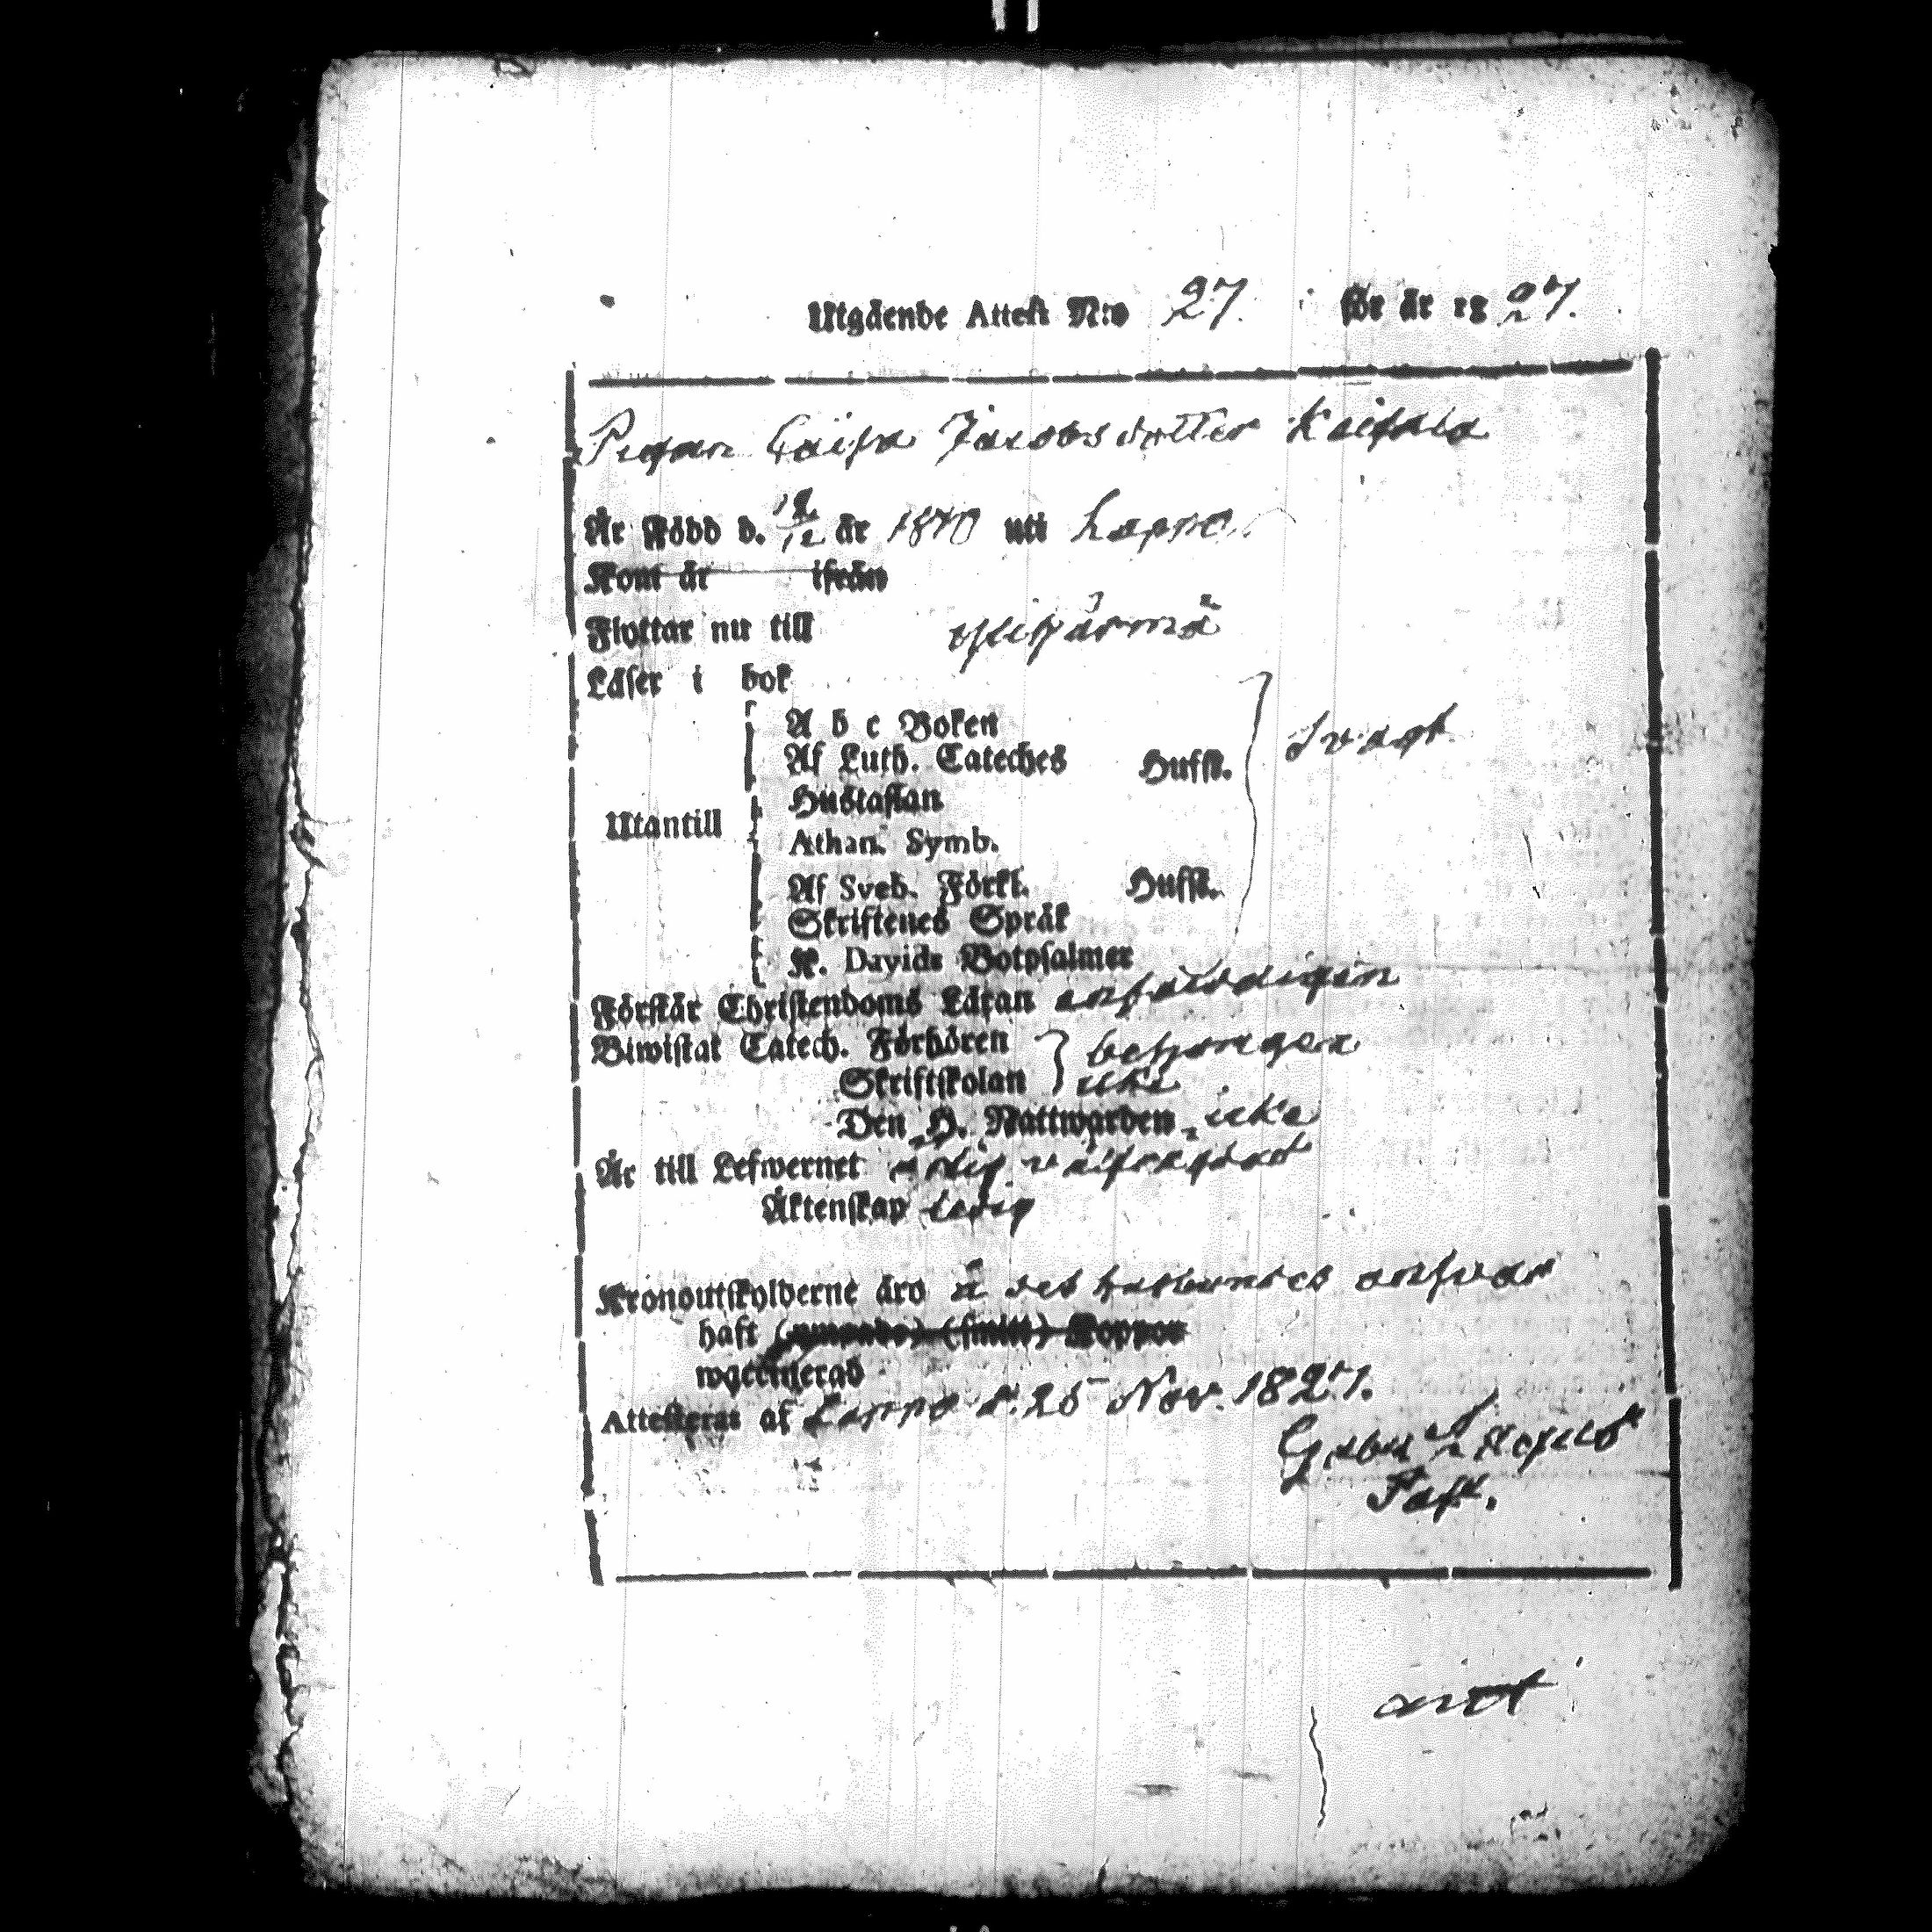 Utgående Attest N:o 27. för år 1827.
Pigan Caisa Jacobsdotter Keisala
Är Född d. 12/12 år 1810 uti Lappo
Kom år ifrån
Flyttar nu till Ylihärmä
Läser i bok
A b c Boken
Af Luth. Cateches Hufst. Svagt
Hustaflan
Utantill
Athan. Symb.
Af Sveb. Förkl. Hufst.
Skriftenes Språk
K. Davids Botpsalmer
Förstår Christendoms Läran enfaldigen
Biwistat Catech. Förhören behörigen
Skriftskolan icke
Den H. Nattwarden icke
Är till Lefwernet
Äktenskap ledig
Kronoutskylderne äro å husbondes answar
haft Koppor
waccinerad
Attesteras af Lappo d. 25 Nov. 1827.
Past.